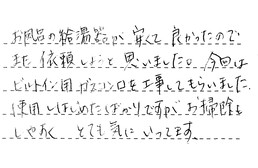 お風呂の給湯器が安くて良かったので
また依頼しようと思いました。今回は
ビルトイン用ガスコンロを工事してもらいました。
使用しはじめたばかりですが、お掃除も
しやすく、とても気にいってます。